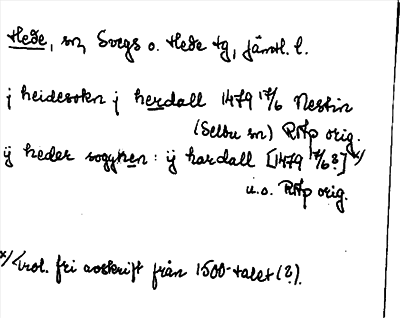 Hede, sn, Svegs o. Hede tg, Jämtl. l.
j heidesokn j herdall 1479 17/6 Nestin
(Selbu sn) RAp orig.
ij heder sogynen : ij hardall [1479 17/6?] x)
u.o. RAp orig.
x) Trol. fri avskrift från 1500-talet (?).